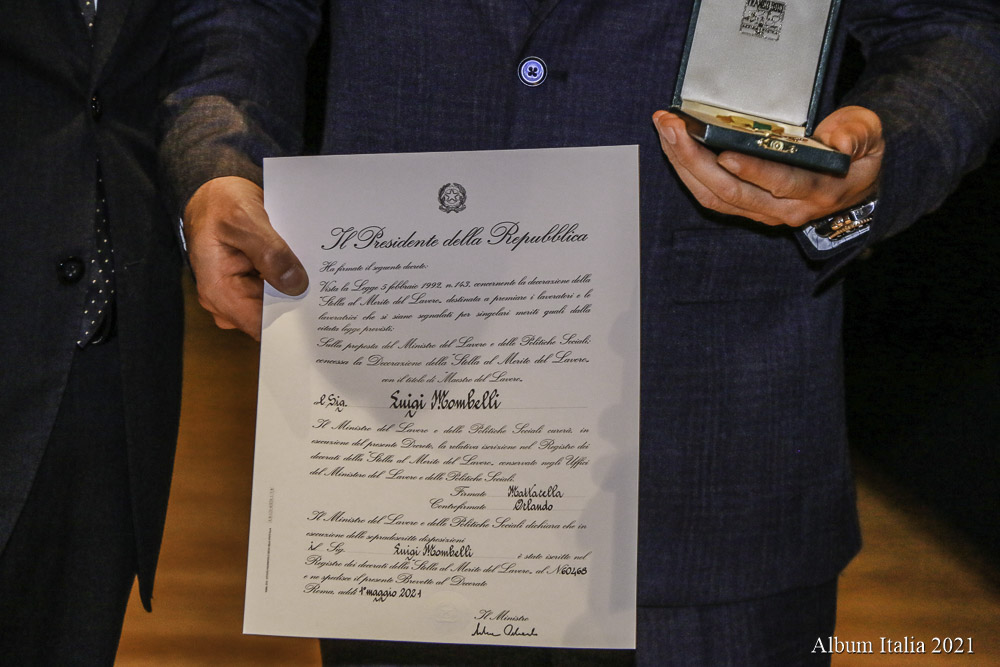 Il Presidente della Repubblica
Ha firmato il seguente decreto:
Vista la Legge 5 febbraio 1992, n. 143, concernente la decorazione della
"Stella al Merito del Lavoro", destinata a premiare i lavoratori e le
lavoratrici che si siano segnalati per singolari meriti quali dalla
citata legge previsti;
Sulla proposta del Ministro del Lavoro e delle Politiche Sociali;
concessa la Decorazione della "Stella al Merito del Lavoro"
con il titolo di "Maestro del Lavoro"
al Sig. Luigi Mombelli
Il Ministro del Lavoro e delle Politiche Sociali curerà, in
esecuzione del presente Decreto, la relativa iscrizione nel Registro dei
decorati della "Stella al Merito del Lavoro", conservato negli Uffici
del Ministero del Lavoro e delle Politiche Sociali.
Firmato Mattarella
Controfirmato Orlando
Il Ministro del Lavoro e delle Politiche Sociali dichiara che in
esecuzione delle sopradescritte disposizioni
il Sig. Luigi Mombelli è stato iscritto nel
Registro dei decorati della "Stella al Merito del Lavoro" al N 60468
e ne spedisce il presente Brevetto al Decorato
Roma, addì 1° maggio 2021
Il Ministro
Album Italia 2021